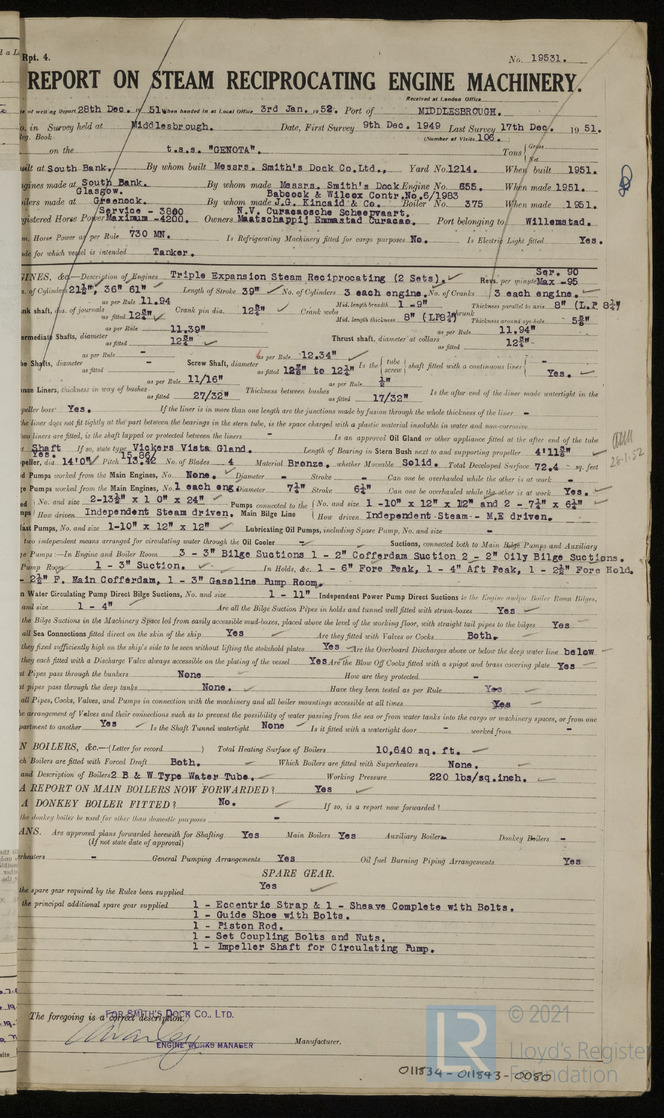 Rpt. 4.
No. 19531.
REPORT ON STEAM RECIPROCATING ENGINE MACHINERY.
Received at London Office
of writing Report 28th Dec. 19 51 When handed in at Local Office 3rd Jan. 19 52. Port of MIDDLESBROUGH.
No. in Survey held at Middlesbrough. Date, First Survey 9th Dec. 1949 Last Survey 17th Dec. 19 51.
Reg. Book. (Number of Visits 106.
on the t.s.s. "GENOTA". Tons Gross Net
built at South Bank. By whom built Messrs. Smith's Dock Co.Ltd., Yard No. 1214. When built 1951.
Engines made at South Bank. By whom made Messrs. Smith's Dock Engine No. 655. When made 1951.
Glasgow. Babcock & Wilcox Contr.No.6/1983
Boilers made at Greenock. By whom made J.G. Kincaid & Co. Boiler No. 375 When made 1951.
Service - 3800 N.V. Curacaosche Scheepvaart.
Registered Horse Power Maximum -4200. Owners Maatschappij Emmastad Curacao. Port belonging to Willemstad.
Nom. Horse Power as per Rule 730 MN. Is Refrigerating Machinery fitted for cargo purposes No. Is Electric Light fitted Yes.
Trade for which vessel is intended Tanker.
ENGINES, &c.—Description of Engines Triple Expansion Steam Reciprocating (2 Sets). Revs. per minute Ser. 90 Max -95
Dia. of Cylinders 21½", 36" 61" Length of Stroke 39" No. of Cylinders 3 each engine. No. of Cranks 3 each engine.
Crank shaft, dia. of journals as per Rule 11.94 as fitted 12⅝" Crank pin dia. 12⅝" Crank webs Mid. length breadth 1 -9" Mid. length thickness 8" (LP8¼) shrunk Thickness parallel to axis 8" (L.P 8¼) Thickness around eye-hole 5⅝"
Intermediate Shafts, diameter as per Rule 11.39" as fitted 12⅝" Thrust shaft, diameter at collars as per Rule 11.94" as fitted 12⅝"
Tube Shafts, diameter as per Rule - as fitted - Screw Shaft, diameter as per Rule 12.34" as fitted 12⅝" to 12¾" Is the tube screw shaft fitted with a continuous liner - Yes.
Bronze Liners, thickness in way of bushes as per Rule 11/16" as fitted 27/32" Thickness between bushes as per Rule ½" as fitted 17/32" Is the after end of the liner made watertight in the
propeller boss Yes. If the liner is in more than one length are the junctions made by fusion through the whole thickness of the liner -
If the liner does not fit tightly at the part between the bearings in the stern tube, is the space charged with a plastic material insoluble in water and non-corrosive
If two liners are fitted, is the shaft lapped or protected between the liners - Is an approved Oil Gland or other appliance fitted at the after end of the tube
Shaft Yes. If so, state type Vickers Vista Gland. Length of Bearing in Stern Bush next to and supporting propeller 4'11⅜"
Propeller, dia. 14'0" Pitch 15.86/ 13.42 No. of Blades 4 Material Bronze. whether Moveable Solid. Total Developed Surface 72.4 sq. feet
Feed Pumps worked from the Main Engines, No. None. Diameter - Stroke - Can one be overhauled while the other is at work -
Bilge Pumps worked from the Main Engines, No. 1 each eng. Diameter 7¼" Stroke 6¼" Can one be overhauled while the other is at work Yes.
Feed Pumps No. and size 2-13½" x 10" x 24" Pumps connected to the Main Bilge Line No. and size 1 -10" x 12" x 12" and 2 - 7¼" x 6¼"
How driven Independent Steam driven. How driven Independent Steam - M.E driven.
Ballast Pumps, No. and size 1-10" x 12" x 12" Lubricating Oil Pumps, including Spare Pump, No. and size -
Are two independent means arranged for circulating water through the Oil Cooler - Suctions, connected both to Main Bilge Pumps and Auxiliary
Bilge Pumps:—In Engine and Boiler Room 3 - 3" Bilge Suctions 1 - 2" Cofferdam Suction 2 - 2" Oily Bilge Suctions.
Pump Room 1 - 3" Suction. In Holds, &c. 1 - 6" Fore Peak, 1 - 4" Aft Peak, 1 - 2½" Fore Hold.
- 2½" F. Main Cofferdam, 1 - 3" Gasoline Pump Room.
Main Water Circulating Pump Direct Bilge Suctions, No. and size 1 - 11" Independent Power Pump Direct Suctions to the Engine and/or Boiler Room Bilges,
No. and size 1 - 4" Are all the Bilge Suction Pipes in holds and tunnel well fitted with strum-boxes Yes
Are the Bilge Suctions in the Machinery Space led from easily accessible mud-boxes, placed above the level of the working floor, with straight tail pipes to the bilges Yes
Are all Sea Connections fitted direct on the skin of the ship Yes Are they fitted with Valves or Cocks Both.
Are they fixed sufficiently high on the ship's side to be seen without lifting the stokehold plates Yes Are the Overboard Discharges above or below the deep water line below
Are they each fitted with a Discharge Valve always accessible on the plating of the vessel Yes Are the Blow Off Cocks fitted with a spigot and brass covering plate Yes
What Pipes pass through the bunkers None How are they protected -
What pipes pass through the deep tanks None. Have they been tested as per Rule Yes
Are all Pipes, Cocks, Valves, and Pumps in connection with the machinery and all boiler mountings accessible at all times Yes
Is the arrangement of Valves and their connections such as to prevent the possibility of water passing from the sea or from water tanks into the cargo or machinery spaces, or from one
compartment to another Yes Is the Shaft Tunnel watertight None Is it fitted with a watertight door - worked from -
MAIN BOILERS, &c.—(Letter for record ) Total Heating Surface of Boilers 10,640 sq. ft.
Which Boilers are fitted with Forced Draft Both. Which Boilers are fitted with Superheaters None.
No. and Description of Boilers 2 B & W Type Water Tube. Working Pressure 220 lbs/sq.inch.
IS A REPORT ON MAIN BOILERS NOW FORWARDED? Yes
IS A DONKEY BOILER FITTED? No. If so, is a report now forwarded? -
Is the donkey boiler be used for other than domestic purposes -
PLANS. Are approved plans forwarded herewith for Shafting Yes Main Boilers Yes Auxiliary Boilers - Donkey Boilers -
(If not state date of approval)
Superheaters - General Pumping Arrangements Yes Oil fuel Burning Piping Arrangements Yes
SPARE GEAR.
Has the spare gear required by the Rules been supplied Yes
State the principal additional spare gear supplied 1 - Eccentric Strap & 1 - Sheave Complete with Bolts.
1 - Guide Shoe with Bolts.
1 - Piston Rod.
1 - Set Coupling Bolts and Nuts.
1 - Impeller Shaft for Circulating Pump.
The foregoing is a correct description.
FOR SMITH'S DOCK CO., LTD.
ENGINE WORKS MANAGER
Manufacturer.
© 2021
Lloyd's Register
Foundation
011834-011843-0080